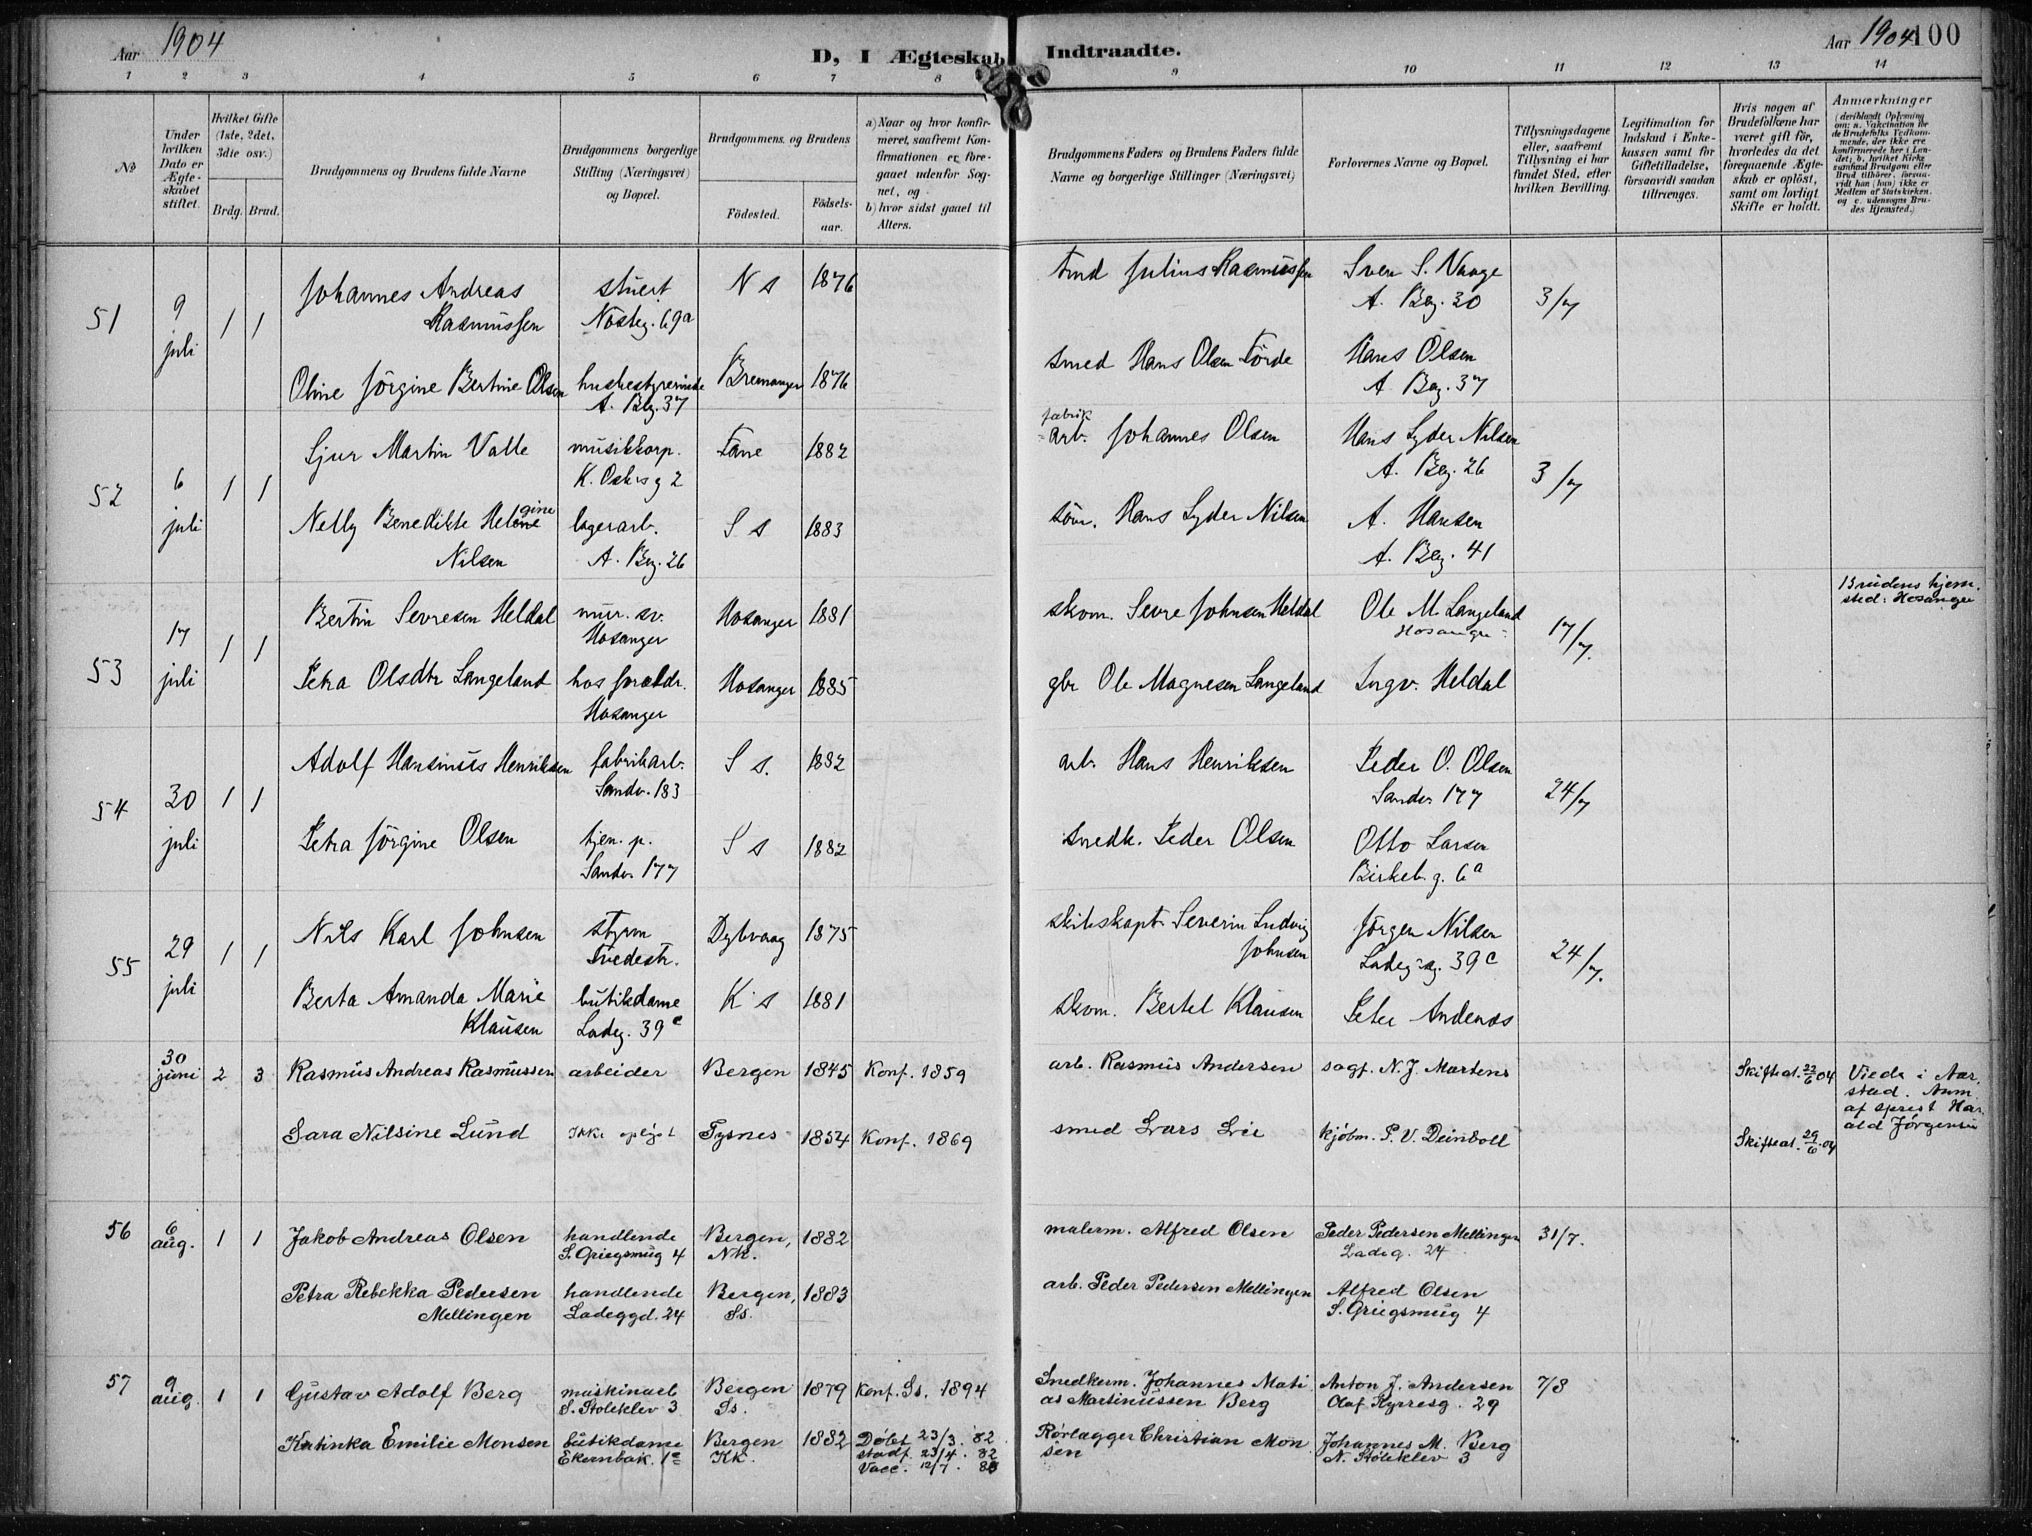 Aar 1904
D, I Ægteskab Indtraadte.
Aar 1904 100
1 2 3 4 5 6 7 8 9 10 11 12 13 14
No
Under hvilken Dato er Ægteskabet stiftet.
Hvilket Gifte (1ste, 2det, 3die osv.)
Brdg. Brud.
Brudgommens og Brudens fulde Navne
Brudgommens borgerlige Stilling (Næringsvei) og Bopæl.
Brudgommens og Brudens
Födested.
Födselsaar.
a) Naar og hvor konfirmeret, saafremt Konfirmationen er foregaaet udenfor Sognet, og
b) hvor sidst gaaet til Alters.
Brudgommens Faders og Brudens Faders fulde Navne og borgerlige Stillinger (Næringsvei)
Forlovernes Navne og Bopæl.
Tillysningsdagene eller, saafremt Tillysning ei har fundet Sted, efter hvilken Bevilling.
Legitimation for Indskud i Enkekassen samt for Giftetilladelse, forsaavidt saadan tiltrænges.
Hvis nogen af Brudefolkene har været gift för, hvorledes da det foregaaende Ægteskab er oplöst, samt om lovligt Skifte er holdt.
Anmærkninger (deriblandt Oplysning om: a. Vakcination for de Brudefolks Vedkommende, der ikke ere konfirmerede her i Landet; b. hvilket Kirkesamfund Brudgom eller Brud tilhörer, forsaavidt han (hun) ikke er Medlem af Statskirken. og c. udensogns Brudes Hjemsted.)
51 9 juli 1 1 Johannes Andreas Rasmussen stuert Nösteg. 69a N s 1876 Julius Rasmussen Sven S. Vaage A. Bg. 30 3/7
Oline Jörgine Bertine Olsen husbestyrerinde A. Bg. 37 Bremanger 1876 smed Hans Olsen Förde Hans Olsen A. Bg. 37
52 6 juli 1 1 Sjur Martin Valle musikkorp. Fane 1882 fabrikarb. Johannes Olsen Hans Lyder Nilsen A. Bg. 26 3/7
Nelly Benedikte Helene gine Nilsen lagerarb. A. Bg. 26 S s 1883 söm. Hans Lyder Nilsen A. Hansen A. Bg. 41
53 17 juli 1 1 Bertin Sevresen Heldal mur. sv. Hosanger Hosanger 1881 skom. Sevre Johnsen Heldal Ole M. Langeland Hosanger 17/7. Brudens hjemsted: Hosanger
Petra Olsdtr Langeland hos foreldr. Hosanger Hosanger 1885 gbr Ole Magnesen Langeland Ingv. Heldal
54 30 juli 1 1 Adolf Hansmus Henriksen fabrikarb. Sandv. 183 S s. 1882 arb. Hans Henriksen Peder O. Olsen Sandv. 177 24/7
Petra Jörgine Olsen tjen. p. Sandv. 177 S s 1882 Snedk. Peder Olsen Otto Larsen Birkeb. g. 6a
55 29 juli 1 1 Nils Karl Johnsen styrm Tvedestr. Dybvaag 1875 skibskapt. Severin Ludvig Johnsen Jörgen Nilsen Ladeg. 39c 24/7.
Berta Amanda Marie Klausen butikdame Ladeg. 39c K s 1881 skom. Bertel Klausen Peter Andenæs
30 juni 2 3 Rasmus Andreas Rasmussen arbeider Bergen 1845 Konf. 1859 arb. Rasmus Andersen sagf. N. J. Martens Skifteat. 22/6 04 Viede i Aarstad. Anm. af sprest Harald Jørgensen
Sara Nilsine Lund Ikke oplyst Tysnes 1854 Konf. 1869 smed Lars Lie kjøbm. P. V. Deinboll Skifteat. 29/6 04
56 6 aug. 1 1 Jakob Andreas Olsen handlende S. Griegsmug 4 Bergen, Nk. 1882 malerm. Alfred Olsen Peder Pedersen Mellingen Ladeg. 24 31/7.
Petra Rebekka Pedersen Mellingen handlende Ladeggd. 24 Bergen, Ss. 1883 arb. Peder Pedersen Mellingen Alfred Olsen S. Griegsmug 4
57 9 aug. 1 1 Gustav Adolf Berg maskinarb S. Stoleklev 3 Bergen Ss. 1879 Konf. Ss. 1894 Snedkerm. Johannes Mathias Martinussen Berg Anton J. Andersen Olaf Kyrresg. 29 7/8
Katinka Emilie Monsen butikdame Ekernbak. 1c Bergen Kk. 1882 Døbt 23/3. 82 stadf. 23/4. 82 Vacc. 12/7. 86 Rørlægger Christian Monsen Johannes M. Berg N. Støleklev 3